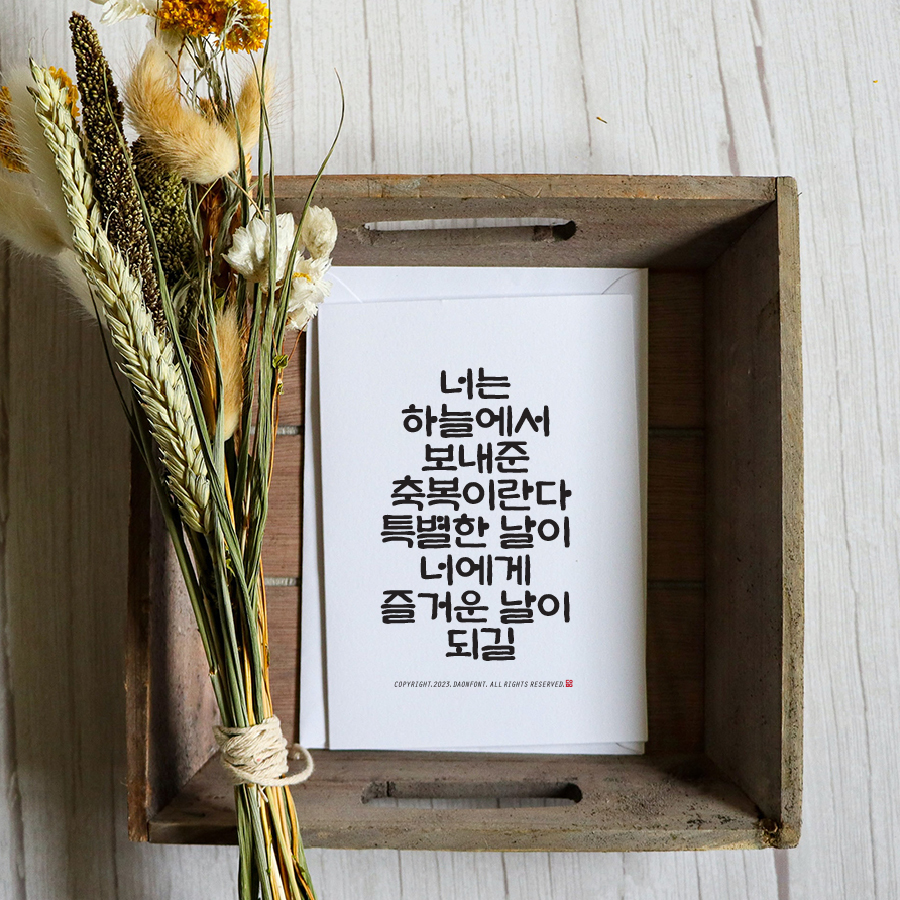 너는
하늘에서
보내준
축복이란다
특별한 날이
너에게
즐거운 날이
되길
COPYRIGHT.2023. DAONFONT. ALL RIGHTS RESERVED.